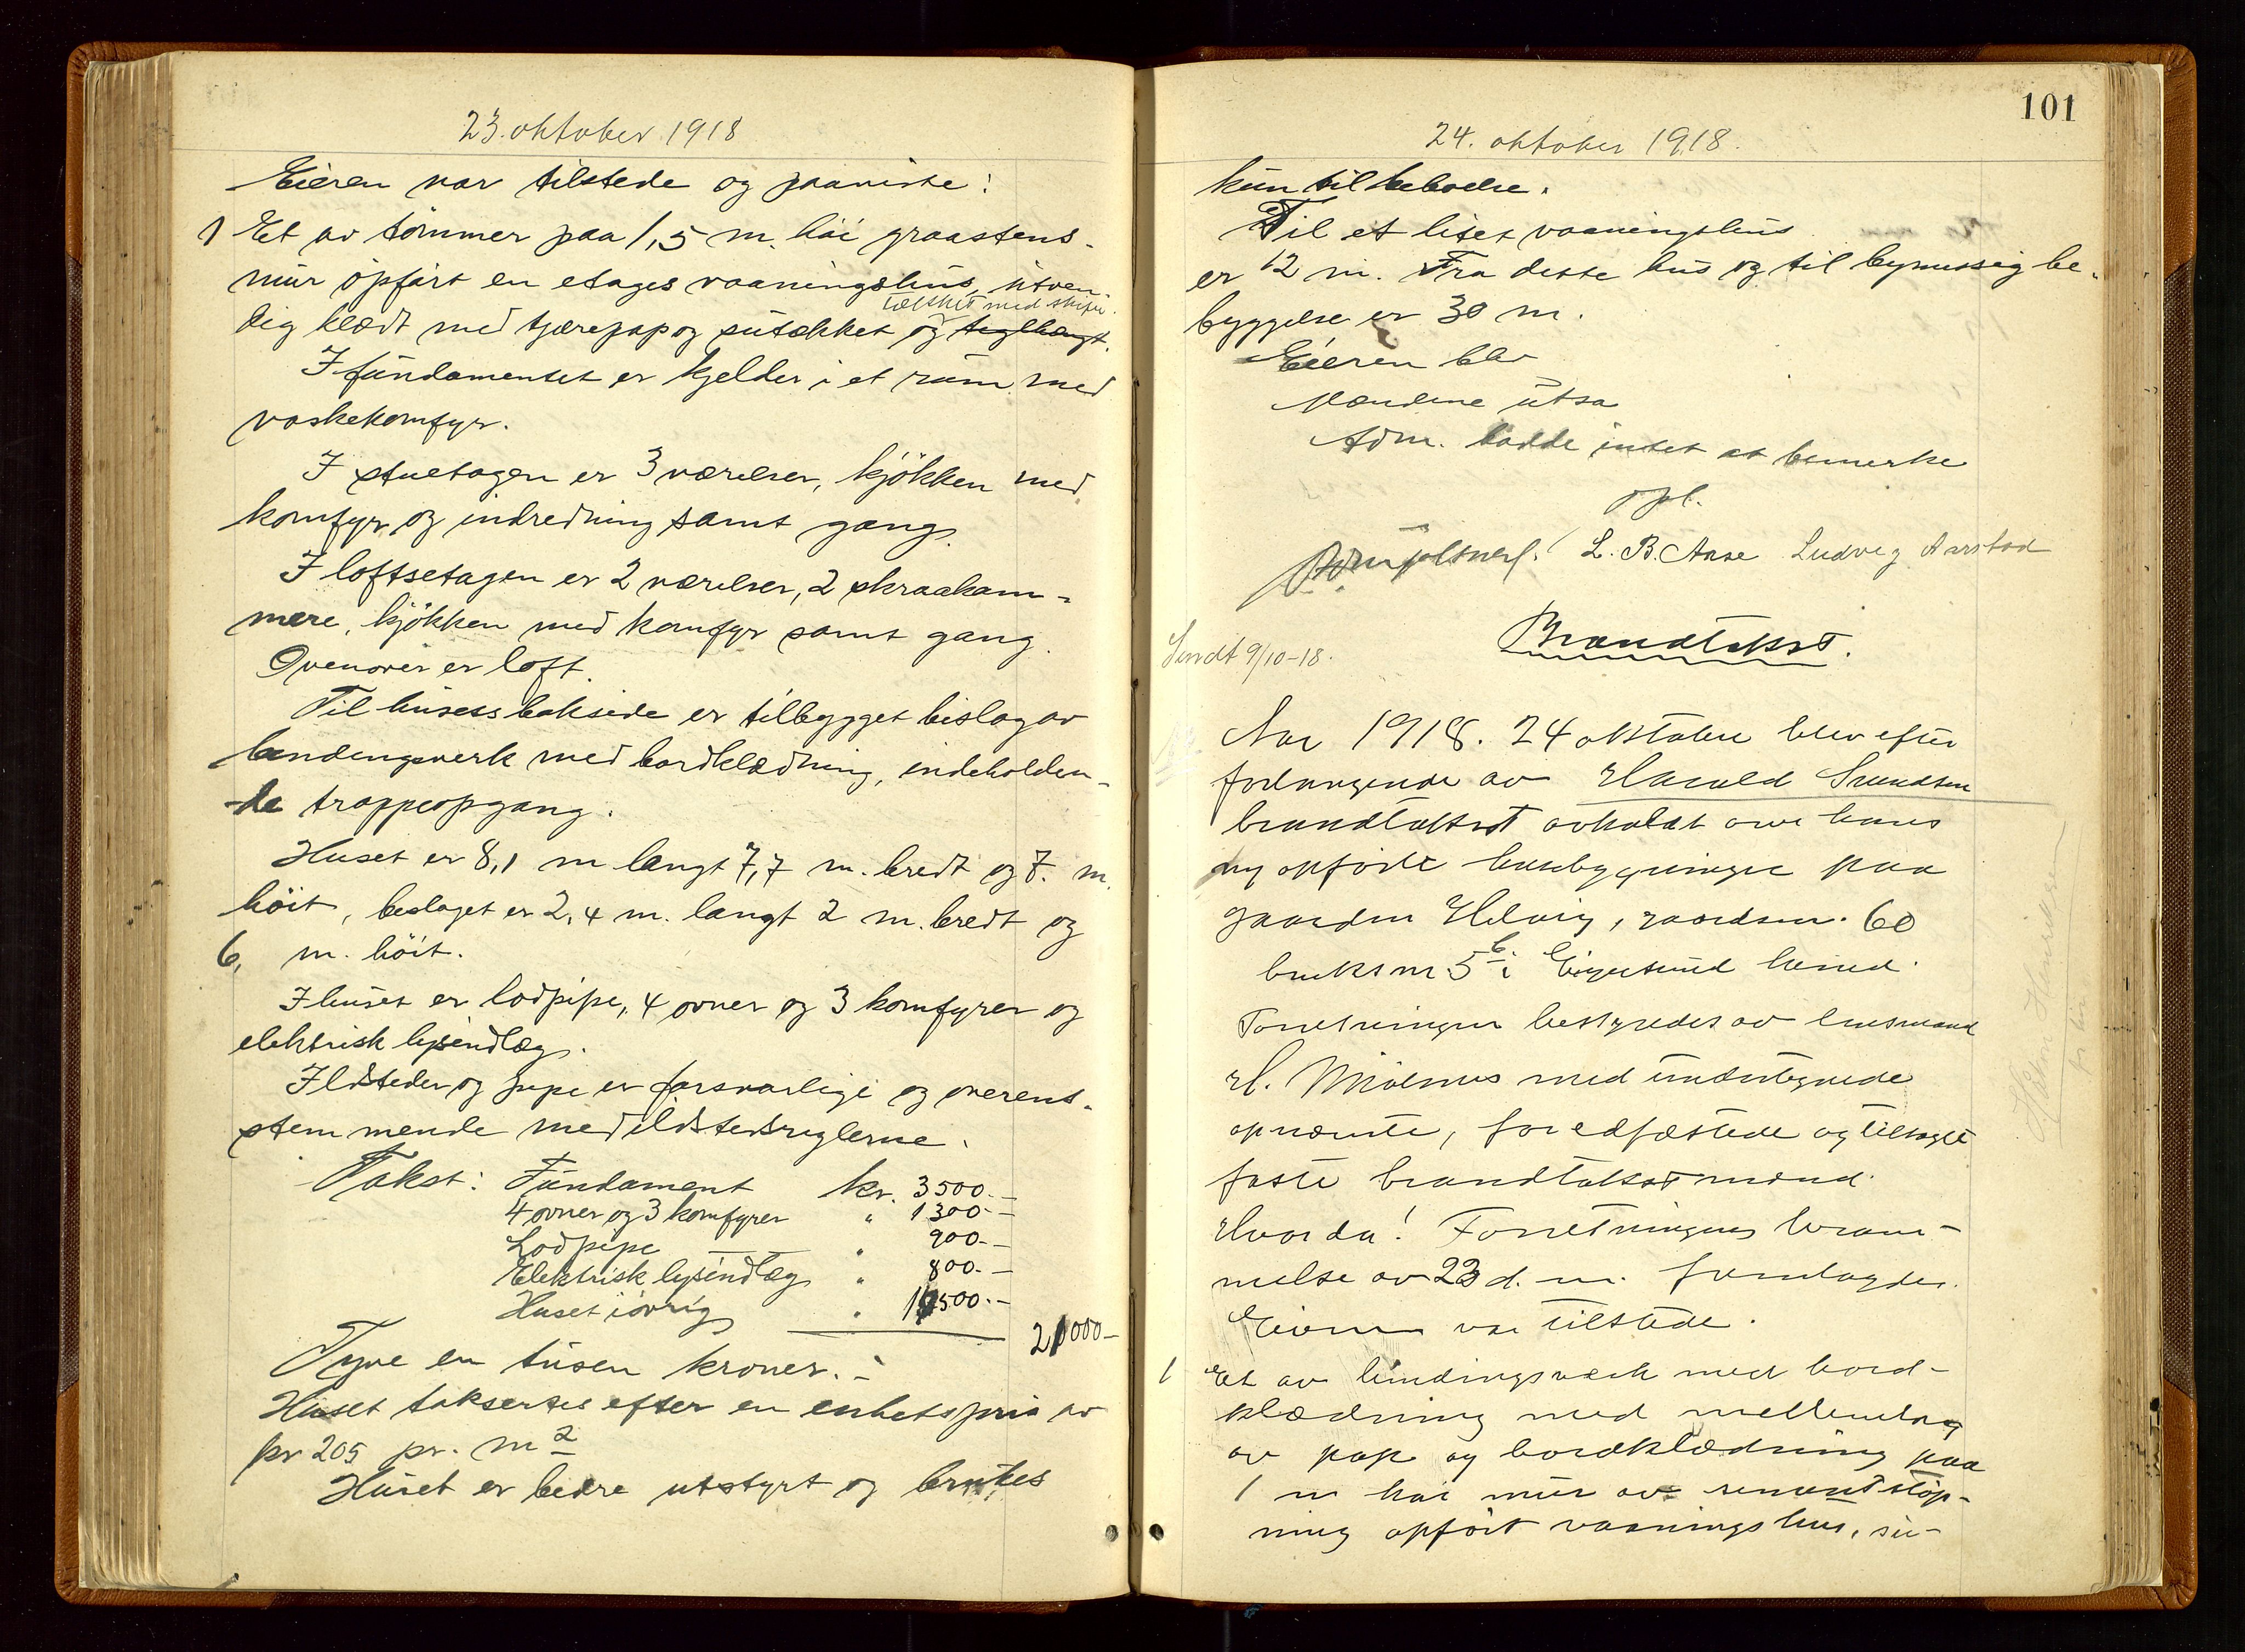 23. oktober 1918
Eieren var tilstede og paaviste:
1 Et av tømmer paa 1,5 m. høi graastens-
mur opført en etages vaaningshus, utven-
tækket med skifer.
dig klædt med tjærepap og sutækket og teglhængt.
I fundamentet er kjelder i et rum med
vaskekomfyr.
I stuetagen er 3 værelser, kjökken med
komfyr og indredning samt gang.
I loftsetagen er 2 værelser, 2 skraakam-
mere, kjökken med komfyr samt gang.
Ovenover er loft.
Til husets bakside er tilbygget bislag av
bindingsverk med bordklædning, indeholden-
de trappeopgang.
Huset er 8,1 m langt 7,7 m. bredt og 7. m.
höit, beslaget er 2,4 m. langt 2 m. bredt og
6, m. höit.
I huset er lodpipe, 4 ovner og 3 komfyrer og
elektrisk lysindlæg.
Ildsteder og pipe er forsvarlige og overens-
stemmende med ildstedsreglerne.
Takst: Fundament kr. 3500.-
4 ovner og 3 komfyrer " 1300.-
Lodpipe " 900.-
Elektrisk lysindlæg " 800.-
Huset iövrig " 14500.-
21000-
Tyve en tusen kroner.-
Huset taksertes efter en enhetspris av
kr 205 pr. m2
Huset er bedre utstyrt og brukes
101
24. oktober 1918.
kun til beboelse.
Til et litet vaaningshus
er 12 m. Fra dette hus og til bymessig be-
byggelse er 30 m.
Eieren blev
Mændene utsa
Adm. hadde intet at bemerke
opl.
L. B. Aase Ludvig Aarstad
Sendt 9/10-18.
Brandtakst.
Aar 1918. 24 oktober blev efter
forlangende av Harald Svendsen
brandtakst avholdt over hans
ny opförte husbygninger paa
gaarden Hetvig, gaardsnr. 60
b
bruksnr 5 i Eigersund herred.
Forretningen bestyredes av lensmand
H. Mölmus med undertegnede
opnævnte, foredfæstede og tilsagte
faste brandtakstmænd.
Hvorda! Forretningens beram-
melse av 23 d. m. fremlagdes.
Eieren var tilstede.
1 Et av bindingsverk med bord-
klædning med mellemlag
av pap og bordklædning paa
1 m høi mur av sementstøp-
ning opført vaaningshus, su-